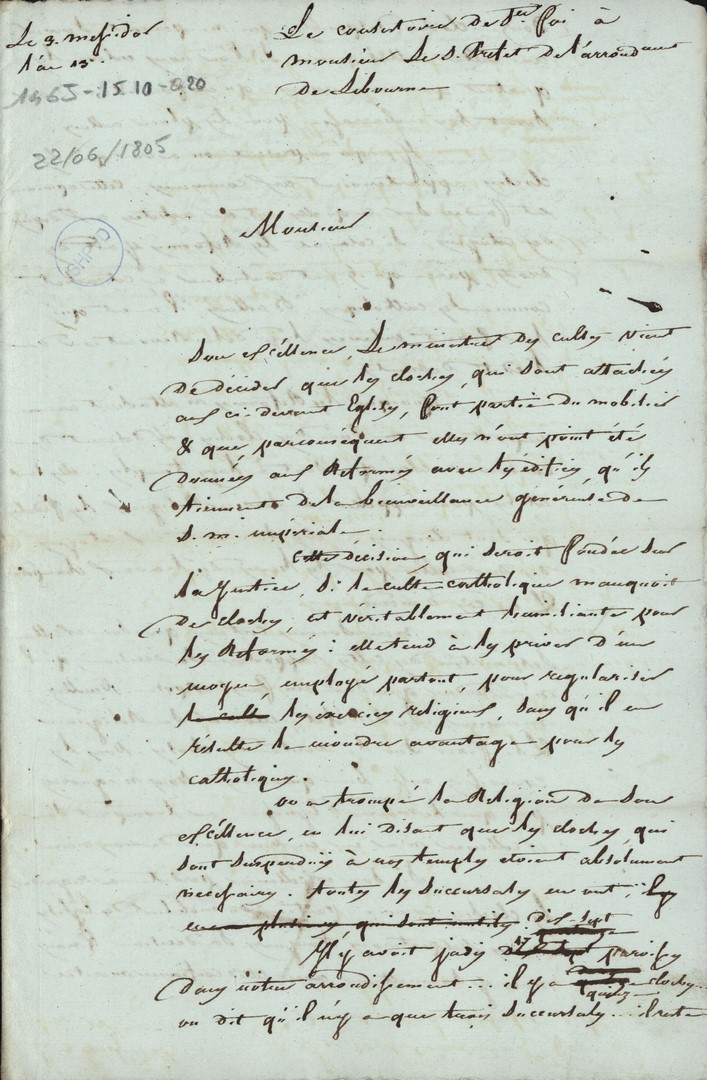 Le 3. messidor
l'an 13.
14GJ-15.10-020
22/06/1805
Le consistoire de Ste foi à
monsieur Le S. Prefet de l'arrondmt
De Libourne
Monsieur
Son excéllence, Le ministre des cultes vient
De décider que les cloches, qui sont attachées
aux ci-devant Eglises, font partie du mobilier
& que, parconséquent elles n'ont point été
Données aux Réformés avec les édifices, qu'ils
tiennent de la bienveillance généreuse de
S. m. impériale.
Cette décision, qui seroit fondée sur
la justice, si le culte catholique manquoit
De cloches, est véritablement humiliante pour
les Réformés: elle tend à les priver d'un
moyen, employé partout, pour regulariser
le culte les exercices religieux, sans qu'il en
résulte le moindre avantage pour les
catholiques.
on a trompé la Religion de Son
excéllence, en lui disant que les cloches, qui
sont suspendues à nos temples étoient absolument
necessaires. toutes les Succursales en ont, il y
en a plusieurs qui sont inutiles.
dix-sept
Il y avoit jadis 17 paroisses
Dans notre arrondissement... il y a cloches...
quinze
on dit qu'il n'y a que trois Succursales... il reste